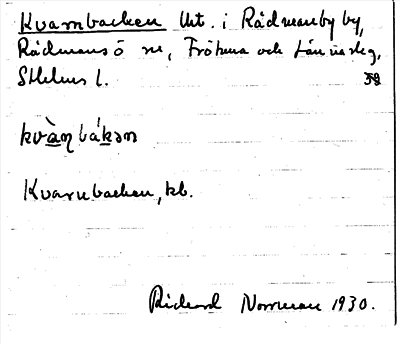 Kvarnbacken Urt. i Rådmanby by,
Rådmansö sn, Frötuna och Länna slg,
Sthlms l. 59
kvàṇbákən
Kvarnbacken, kb.
Rickard Norrman 1930.